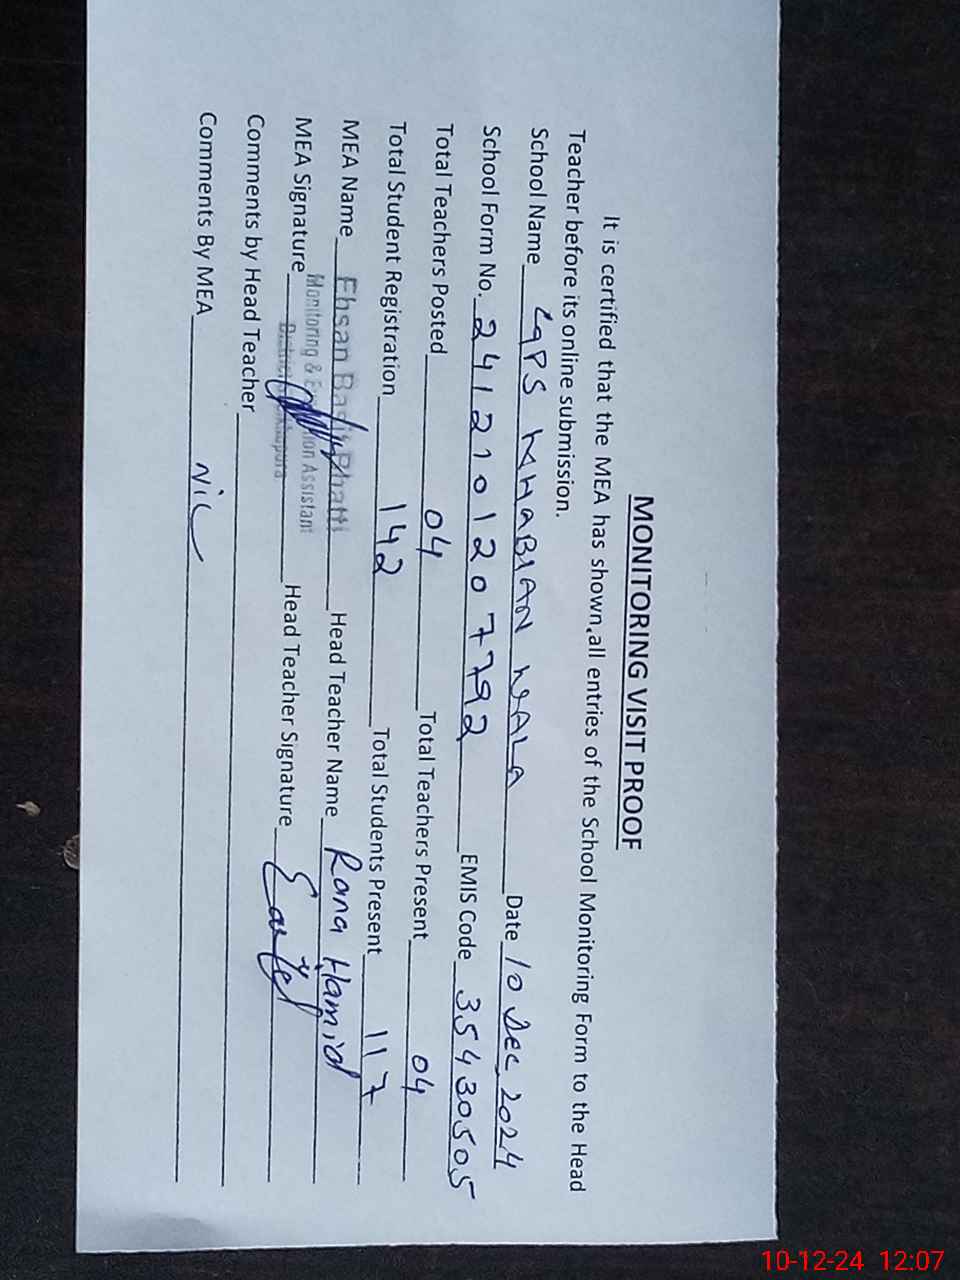 MONITORING VISIT PROOF
It is certified that the MEA has shown all entries of the School Monitoring Form to the Head
Teacher before its online submission.
School Name GPS WHABIAN WALA Date 10 Dec, 2024
School Form No. 2412101207792 EMIS Code 35430505
Total Teachers Posted 04 Total Teachers Present 04
Total Student Registration 142 Total Students Present 117
MEA Name Ehsan Bhatti Head Teacher Name Rana Hamid
Monitoring & Assistant
MEA Signature Head Teacher Signature
District
Comments by Head Teacher
Comments By MEA Nil
10-12-24 12:07